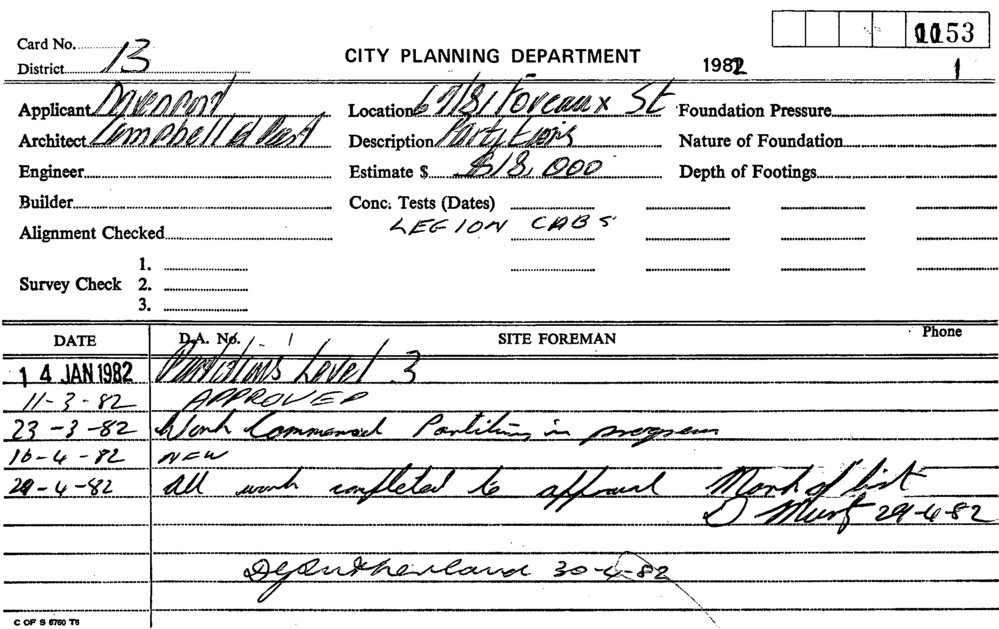 1153
Card No.
District 13
CITY PLANNING DEPARTMENT
1982
1
Applicant Davenport
Location 67/81 Foveaux St
Foundation Pressure
Architect Campbell &
Description Partitions
Nature of Foundation
Engineer
Estimate $ $18,000
Depth of Footings
Builder
Conc. Tests (Dates)
Alignment Checked
LEGION CABS
1.
Survey Check 2.
3.
DATE D.A. No. SITE FOREMAN Phone
14 JAN 1982 Partitions Level 3
11-3-82 APPROVED
23-3-82 Work Commenced Partitions in progress
16-4-82 NEW
29-4-82 All work completed to approval Mark of list
D 29-4-82
Sutherland 30-4-82
C OF S 6760 T6